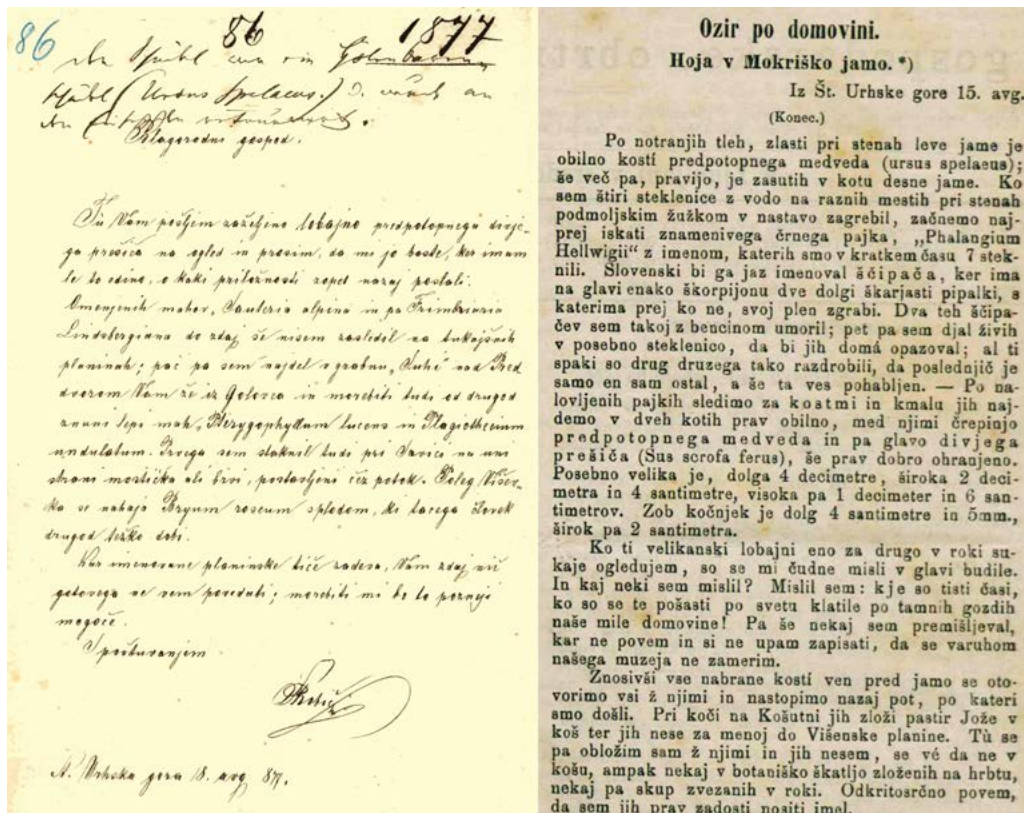 86
86
1877
(Ursus spelaeus.)
Blagorodni gospod.
Tu Vam pošljem zaželjeno lobajno predpotopnega divje-
ga prešiča na ogled in prosim, da mi jo boste, ker imam
le to edino, o kaki priložnosti zopet nazaj poslali.
Omenjenih mahov, Sauteria alpina in pa Fimbriaria
Lindenbergiana do zdaj še nisem zasledil na tukajšnih
planinah; pač pa sem najdel v grabnu, Suhi nad Pred
dvorom Vam že iz Golovca in morebiti tudi od drugod
znani lepi mah, Pterygophyllum lucens in Plagiothecium
undulatum. Prvega sem staknil tudi pri Savici na uni
strani mostička ali brvi, postavljeni čez potok. Poleg
se nahaja Bryum roseum s plodom, ki tacega človek
drugod težko dobi.
Kar imenovane planinske tiče zadeva, Vam zdaj nič
gotovega ne vem povedati; morebiti mi bo to pozneje
mogoče.
S poštovanjem
Robič
Št. Urhska gora 18. avg. 877.
Ozir po domovini.
Hoja v Mokriško jamo. *)
Iz Št. Urhske gore 15. avg.
(Konec.)
Po notranjih tleh, zlasti pri stenah leve jame je
obilno kosti predpotopnega medveda (ursus spelaeus);
še več pa, pravijo, je zasutih v kotu desne jame. Ko
sem štiri steklenice z vodo na raznih mestih pri stenah
podmoljskim žužkom v nastavo zagrebil, začnemo naj-
prej iskati znamenivega črnega pajka, „Phalangium
Hellwigii“ z imenom, katerih smo v kratkem času 7 stek-
nili. Slovenski bi ga jaz imenoval ščipača, ker ima
na glavi enako škorpijonu dve dolgi škarjasti pipalki, s
katerima prej ko ne, svoj plen zgrabi. Dva teh ščipa-
čev sem takoj z bencinom umoril; pet pa sem djal živih
v posebno steklenico, da bi jih domá opazoval; al ti
spaki so drug druzega tako razdrobili, da poslednjič je
samo en sam ostal, a še ta ves pohabljen. — Po na-
lovljenih pajkih sledimo za kostmi in kmalu jih naj-
demo v dveh kotih prav obilno, med njimi črepinjo
predpotopnega medveda in pa glavo divjega
prešiča (Sus scrofa ferus), še prav dobro ohranjeno.
Posebno velika je, dolga 4 decimetre, široka 2 deci-
metra in 4 santimetre, visoka pa 1 decimeter in 6 san-
timetrov. Zob kočnjek je dolg 4 santimetre in 5mm.,
širok pa 2 santimetra.
Ko ti velikanski lobajni eno za drugo v roki su-
kaje ogledujem, so se mi čudne misli v glavi budile.
In kaj neki sem mislil? Mislil sem: kje so tisti časi,
ko so se te pošasti po svetu klatile po tamnih gozdih
naše mile domovine! Pa še nekaj sem premišljeval,
kar ne povem in si ne upam zapisati, da se varuhom
našega muzeja ne zamerim.
Znosivši vse nabrane kosti ven pred jamo se oto-
vorimo vsi ž njimi in nastopimo nazaj pot, po kateri
smo došli. Pri koči na Košutni jih zloži pastir Jože v
koš ter jih nese za menoj do Višenske planine. Tù se
pa obložim sam ž njimi in jih nesem, se vé da ne v
košu, ampak nekaj v botaniško škatljo zloženih na hrbtu,
nekaj pa skup zvezanih v roki. Odkritosrčno povem,
da sem jih prav zadosti nositi imel.